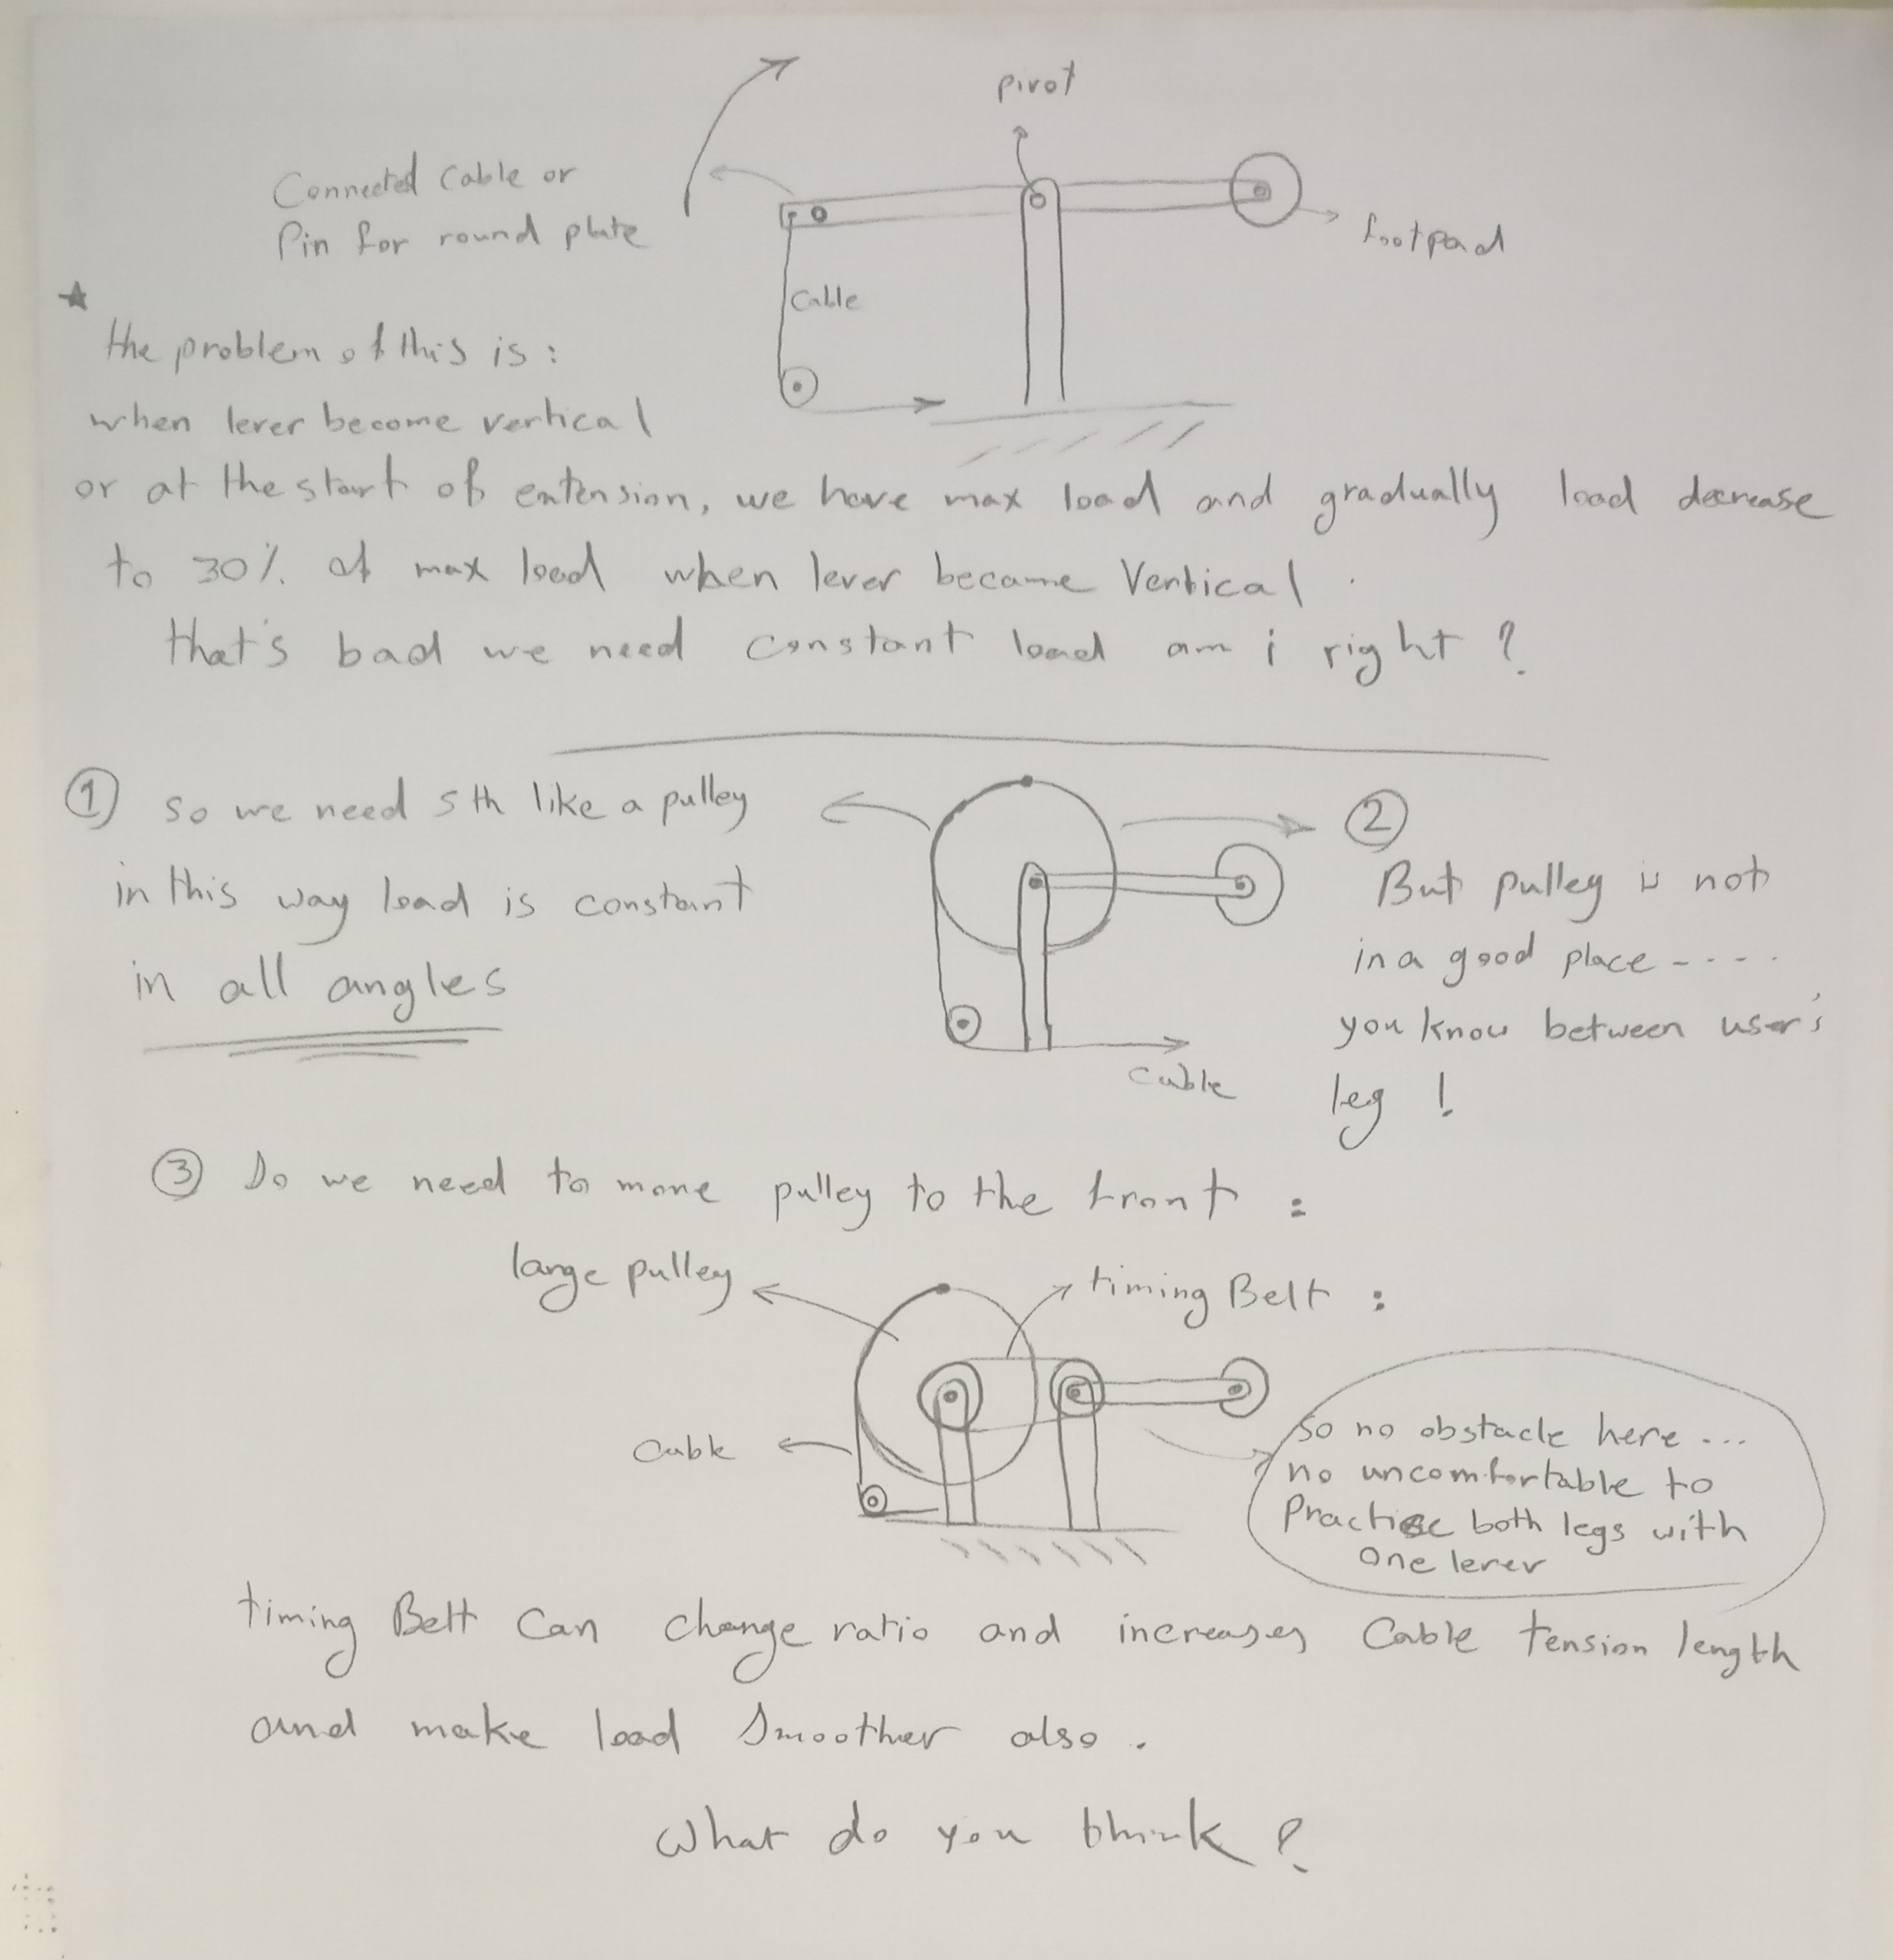 pivot
Connected Cable or
Pin for round plate
footpad
Cable
the problem of this is :
when lever become vertical
or at the start of extension, we have max load and gradually load decrease
to 30% of max load when lever became Vertical .
that's bad we need constant load am i right ?
① so we need sth like a pulley
in this way load is constant
in all angles
②
But pulley is not
in a good place - - - -
you know between user's
leg !
Cable
③ Do we need to move pulley to the front :
large pulley
timing Belt :
Cable
so no obstacle here ...
no uncomfortable to
Practice both legs with
one lever
timing Belt Can change ratio and increases Cable tension length
and make load Smoother also .
What do you think ?